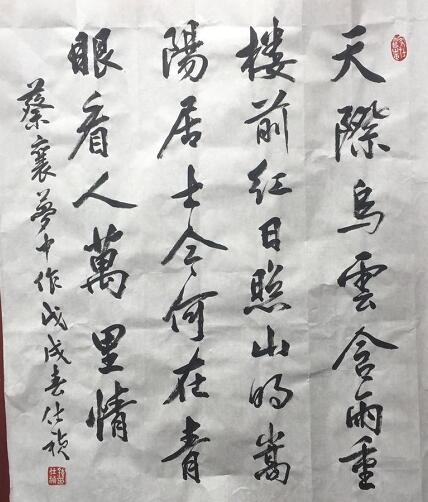 天際烏雲含雨重
樓前紅日照山明嵩
陽居士今何在青
眼看人萬里情
蔡襄夢中作戊戌春仕楨